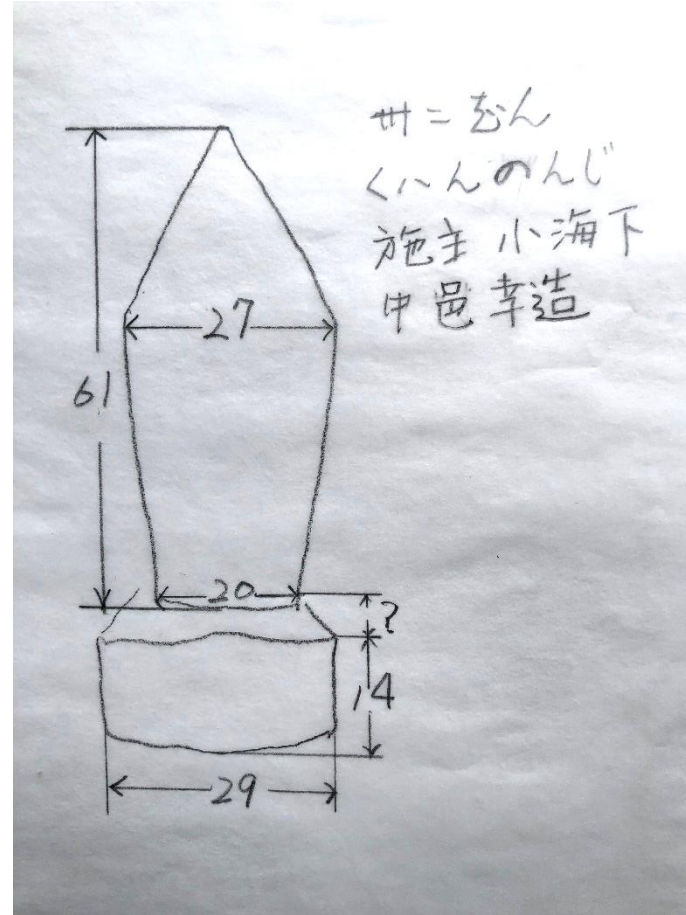 卅二むん
くハんのんじ
施主 小海下
中邑幸造
27
61
20
?
14
29